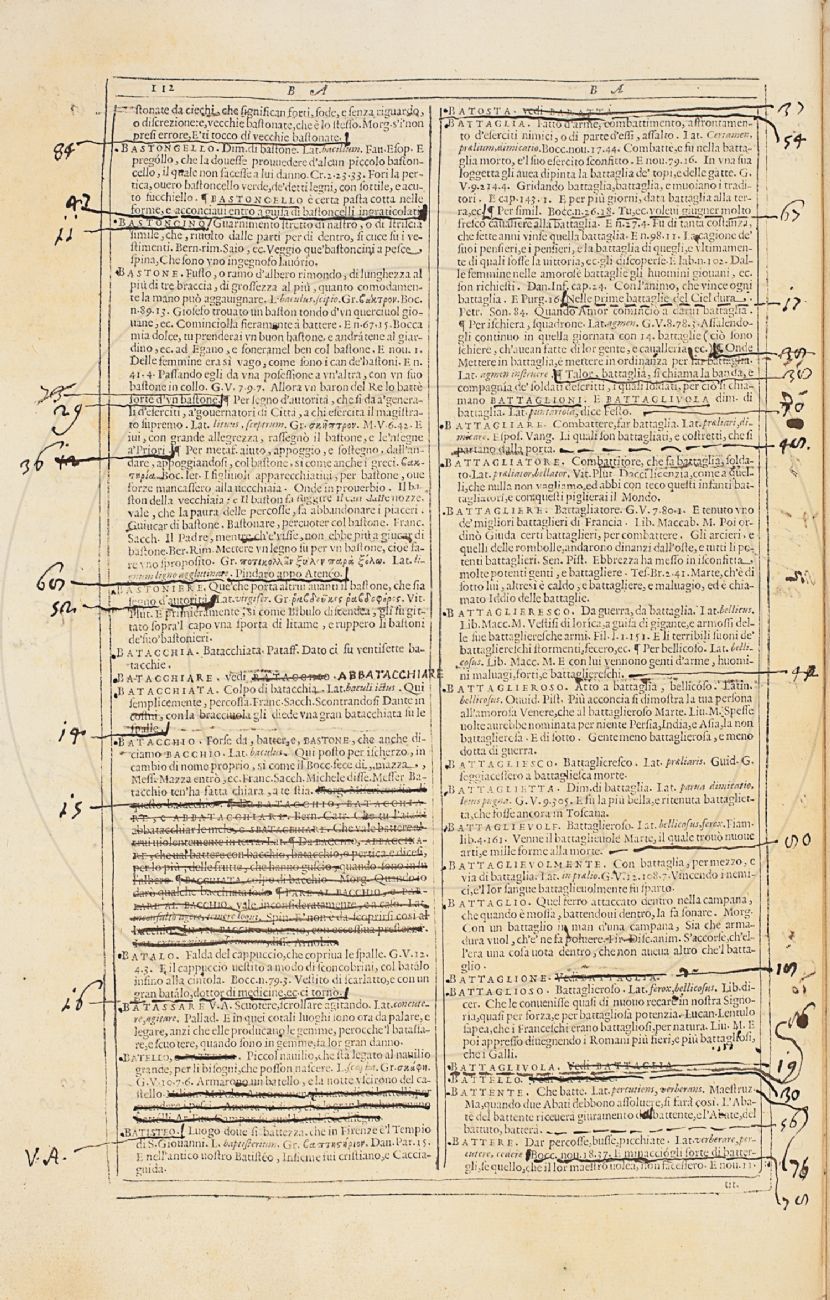 112 B A B A
stonate da ciechi, che significan forti, sode, e senza riguardo,
o discrezione, vecchie bastonate, che è lo stesso. Morg. s'i non
presi errore, E' ti tocco di vecchie bastonate.
BASTONCELLO. Dim. di bastone. Lat. bacillum. Fav. Esop. E
pregollo, che la douesse prouuedere d'alcun piccolo baston-
cello, il quale non facesse a lui danno. Cr. 2. 23. 33. Fori la per-
tica, ouero bastoncello verde, de' detti legni, con sottile, e acu-
to succhiello. ¶ BASTONCELLO è certa pasta cotta nelle
forme, e acconciaui entro a guisa di bastoncelli ingraticolati
BASTONCINO, Guarnimento stretto di nastro, o di striscia
simile, che, rinuolto dalle parti per di dentro, si cuce su i ve-
stimenti. Bern. rim. Saio, ec. Veggio que' bastoncini a pesce
spina, Che sono vno ingegnoso lauorio.
BASTONE. Fusto, o ramo d'albero rimondo, di lunghezza al
più di tre braccia, di grossezza al più, quanto comodamen-
te la mano può aggauignare. L. baculus, scipio. Gr. βάκτρον. Boc.
n. 89. 13. Giosefo trouato vn baston tondo d'vn querciuol gio-
uane, ec. Cominciolla fieramente a battere. E n. 67. 15. Bocca
mia dolce, tu prenderai vn buon bastone, e andràtene al giar-
dino, ec. ad Egano, e soneramel ben col bastone. E nou. 1.
Delle femmine era sì vago, come sono i can de' bastoni. E n.
41. 4. Passando egli da vna possessione a vn'altra, con vn suo
bastone in collo. G. V. 7. 9. 7. Allora vn baron del Re lo battè
forte d'vn bastone. ¶ Per segno d'autorità, che si dà a' genera-
li d'eserciti, a' gouernatori di Città, a chi esercita il magistra-
to supremo. Lat. lituus, sceptrum. Gr. σκῆπτρον. M. V. 6. 42. E
iui, con grande allegrezza, rassegnò il bastone, e le 'nsegne
a' Priori. ¶ Per metaf. aiuto, appoggio, e sostegno, dall'an-
dare, appoggiandosi, col bastone, sì come anche i greci.
Boc. let. I figliuoli apparecchiatiui, per bastone, oue
forze mancassero alla vecchiaia. Onde in prouerbio. Il ba-
ston della vecchiaia
vale, che la paura delle percosse, fa abbandonare i piaceri.
Giuucar di bastone. Bastonare, percuoter col bastone. Franc.
Sacch. Il Padre, mentre ch'e' visse, non ebbe più a giucar di
bastone. Ber. Rim. Mettere vn legno su per vn bastone, cioè fa-
re vno sproposito. Gr.
Pindaro appo Ateneo.
BASTONIERE. Que' che porta altrui auanti il bastone, che sia
segno d'autorità. Lat. virgifer. Gr. ῥαβδοῦχος ῥαβδοφόρος. Vit.
Plut. E primieramente, sì come Bibulo discendea, gli fu git-
tato sopra 'l capo vna sporta di litame, e ruppero li bastoni
de' suo' bastonieri.
BATACCHIA. Batacchiata. Pataff. Dato ci fu ventisette ba-
tacchie.
BATACCHIARE. vedi BATACCHIO. ABBATACCHIARE
BATACCHIATA. Colpo di batacchia. Lat. baculi ictus. Qui
semplicemente, percossa. Franc. Sacch. Scontrandosi Dante in
costui, con la bracciuola gli diede vna gran batacchiata su le
spalle.
BATACCHIO. Forse da, batter, e, BASTONE, che anche di-
ciamo BACCHIO. Lat. baculus. Qui posto per ischerzo, in
cambio di nome proprio, sì come il Bocc. fece di, mazza,
Mess. Mazza entrò, ec. Franc. Sacch. Michele disse. Messer Ba-
tacchio ten' ha fatta chiara, a te stia.
BATALO. Falda del cappuccio, che copriua le spalle. G. V. 12.
4. 3. E il cappuccio vestito a modo di sconcobrini, col batàlo
infino alla cintola. Bocc. n. 79. 3. Vestito di scarlatto, e con vn
gran batàlo, dottor di medicine, ec. ci tornò.
BATASSARE V. A. Scuotere, scrollare agitando. Lat. concute-
re, agitare. Pallad. E in quei cotali luoghi sono ora da palare, e
legare, anzi che elle producano le gemme, perocchè 'l batassa-
re, e scuotere, quando sono in gemme, fa lor gran danno.
BATELLO, Piccol nauilio, che sta legato al nauilio
grande, per li bisogni, che posson nascere. L. scapha. Gr. σκάφη.
G. V. 10. 7. 6. Armarono vn batello, e la notte vscirono del ca-
stello.
BATISTEO. Luogo doue si battezza, che in Firenze è 'l Tempio
di S. Giouanni. L. baptisterium. Gr. βαπτιστήριον. Dan. Par. 15.
E nell'antico uostro Batisteo, Insieme fui cristiano, e Caccia-
guida.
84
42
11
29
36
60
52
14
15
16
V. A.
BATOSTA. vedi BARATTA
BATTAGLIA. Fatto d'arme, combattimento, affrontamen-
to d'eserciti nimici, o di parte d'essi, assalto. Lat. Certamen,
prælium, dimicatio. Bocc. nou. 17. 44. Combatte, e fu nella batta-
glia morto, e 'l suo esercito sconfitto. E nou. 79. 16. In vna sua
loggetta gli auea dipinta la battaglia de' topi, e delle gatte. G.
V. 9. 214. 4. Gridando battaglia, battaglia, e muoiano i tradi-
tori. E cap. 143. 1. E per più giorni, data battaglia alla ter-
ra, ec. ¶ Per simil. Bocc. n. 26. 18. Tu, ec. volesti giugner molto
fresco caualiere alla battaglia. E n. 27. 4. Fu di tanta costanza,
che sette anni vinse quella battaglia. E n. 98. 11. La cagione de'
suoi pensieri, e i pensieri, e la battaglia di quegli, e vltimamen-
te di quali fosse la vittoria, ec. gli discoperse. E lab. n. 102. Dal-
le femmine nelle amorose battaglie gli huomini giouani, ec.
son richiesti. Dan. Inf. cap. 24. Con l'animo, che vince ogni
battaglia. E Purg. 16. Nelle prime battaglie del Ciel dura.
Petr. Son. 84. Quando Amor cominciò a darui battaglia.
¶ Per ischiera, squadrone. Lat. agmen. G. V. 8. 78. 3. Assalendo-
gli continuo in quella giornata con 14. battaglie (ciò sono
schiere, ch'auean fatte di lor gente, e caualleria) ec. Onde
Mettere in battaglia, è mettere in ordinanza per far battaglia.
Lat. agmen instruere. ¶ Talor, battaglia, si chiama la banda, e
compagnia de' soldati descritti, i quali soldati, per ciò si chia-
mano BATTAGLIONI. E BATTAGLIVOLA dim. di
battaglia. Lat. pugnaciola, dice Festo.
BATTAGLIARE. Combattere, far battaglia. Lat. præliari, di-
micare. Espos. Vang. Li quali son battagliati, e costretti, che si
partano dalla porta.
BATTAGLIATORE. Combattitore, che fa battaglia, solda-
to. Lat. præliator, bellator. Vit. Plut. Dacci licenzia, come a quel-
li, che nulla non vagliamo, ed abbi con teco questi infanti bat-
tagliatori, e con questi piglierai il Mondo.
BATTAGLIERE. Battagliatore. G. V. 7. 80. 1. E tenuto vno
de' migliori battaglieri di Francia. Lib. Maccab. M. Poi or-
dinò Giuda certi battaglieri, per combattere. Gli arcieri, e
quelli delle rombolle, andarono dinanzi dall'oste, e tutti li po-
tenti battaglieri. Sen. Pist. Ebbrezza ha messo in isconfitta
molte potenti genti, e battagliere. Tes. Br. 2. 41. Marte, ch'è di
sotto lui, altresì è caldo, e battagliere, e maluagio, ed è chia-
mato Iddio delle battaglie.
BATTAGLIERESCO. Da guerra, da battaglia. Lat. bellicus.
Lib. Macc. M. Vestissi di lorica, a guisa di gigante, e armossi del-
le sue battaglieresche armi. Fil. l. 1. 151. E li terribili suoni de'
battagliereschi stormenti, fecero, ec. ¶ Per bellicoso. Lat. belli-
cosus. Lib. Macc. M. E con lui vennono genti d'arme, huomi-
ni maluagi, forti, e battagliereschi.
BATTAGLIEROSO. Atto a battaglia, bellicoso. Latin.
bellicosus. Ouuid. Pist. Più acconcia si dimostra la tua persona
all'amorosa Venere, che al battaglieroso Marte. Liu. M. Spesse
uolte aurebbe nominata per niente Persia, India, e Asia, la non
battaglieresa. E di sotto. Gente meno battaglierosa, e meno
dotta di guerra.
BATTAGLIESCO. Battaglieresco. Lat. præliaris. Guid. G.
seggiacessero a battagliesca morte.
BATTAGLIETTA. Dim. di battaglia. Lat. parua dimicatio,
leuis pugna. G. V. 9. 305. E fu la più bella, e ritenuta battagliet-
ta, che fosse ancora in Toscana.
BATTAGLIEVOLE. Battaglieroso. Lat. bellicosus, ferox. Fiam-
lib. 4. 161. Venne il battaglieuole Marte, il quale trouò nuoue
arti, e mille forme alla morte.
BATTAGLIEVOLMENTE. Con battaglia, per mezzo, e
via di battaglia. Lat. in prælio. G. V. 12. 108. 7. Vincendo i nemi-
ci, e 'l lor sangue battaglieuolmente fu sparto.
BATTAGLIO. Quel ferro attaccato dentro nella campana,
che quando è mossa, battendoui dentro, la fa sonare. Morg.
Con un battaglio in man d'una campana, Sia che arma-
dura vuol, ch'e' ne fa poluere. Fir. Disc. anim. S'accorse, ch'el-
l'era una cosa uota dentro, che non auea altro che 'l batta-
glio.
BATTAGLIONE. Vedi BATTAGLIA.
BATTAGLIOSO. Battaglieroso. Lat. ferox, bellicosus. Lib. di-
cer. Che le conuenisse quasi di nuouo recare in nostra Signo-
ria, quasi per forza, e per battagliosa potenzia. Lucan. Lentulo
sapea, che i Franceschi erano battagliosi, per natura. Liu. M. E
poi appresso diuegnendo i Romani più fieri, e più battagliosi,
che i Galli.
BATTAGLIVOLA. Vedi BATTAGLIA
BATTELLO.
BATTENTE. Che batte. Lat. percutiens, verberans. Maestruz.
Ma, quando due Abati debbono assoluere, si farà così. L'Aba-
te del battente riceuera giuramento dal battente, e l'Abate, del
battuto, batterà.
BATTERE. Dar percosse, busse, picchiate. Lat. verberare, per-
cutere, cædere Bocc. nou. 18. 37. E minacciògli forte di batter-
gli, se quello, che il lor maestro volea, non facessero. E nou. 11.
tit.
37
54
67
17
30
70
40
42
50
10
19
30
56
76